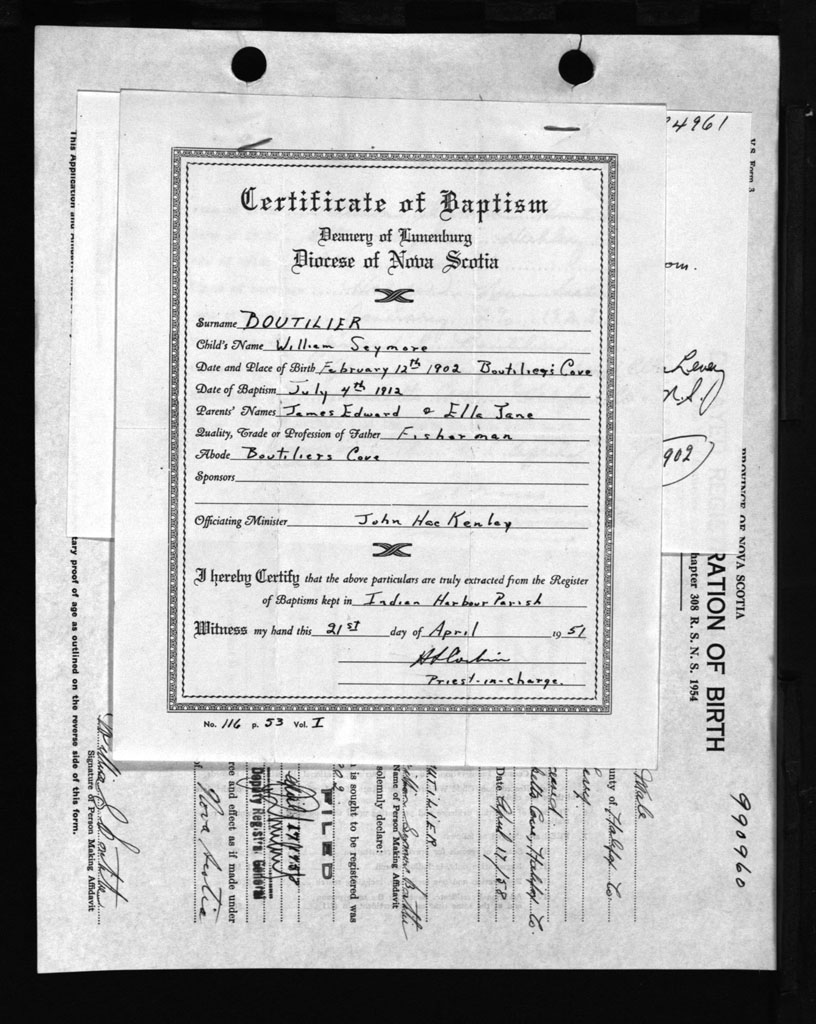 4961
V.S. Form 3
Certificate of Baptism
Deanery of Lunenburg
Diocese of Nova Scotia
om.
Surname BOUTILIER
Child's Name William Seymore
Date and Place of Birth February 12th 1902 Boutiliers Cove
Date of Baptism July 4th 1912
N.S.
Parents' Names James Edward & Ella Jane
Quality, Trade or Profession of Father Fisherman
Abode Boutiliers Cove
902
Sponsors
Officiating Minister John Hac Kenley
I hereby Certify that the above particulars are truly extracted from the Register
of Baptisms kept in Indian Harbour Parish
Witness my hand this 21st day of April 1951
Priest-in-charge.
No. 116 p. 53 Vol. I
This Application and
tary proof of age as outlined on the reverse side of this form.
PROVINCE OF NOVA SCOTIA
RATION OF BIRTH
hapter 308 R. S. N. S. 1954
990960
Male
unty of Halifax Co.
Cove, Halifax Co.
Date April 17/58
UTILIER
Name of Person Making Affidavit
solemnly declare:
n is sought to be registered was
902
FILED
Deputy Registrar General
rce and effect as if made under
of Nova Scotia
Signature of Person Making Affidavit